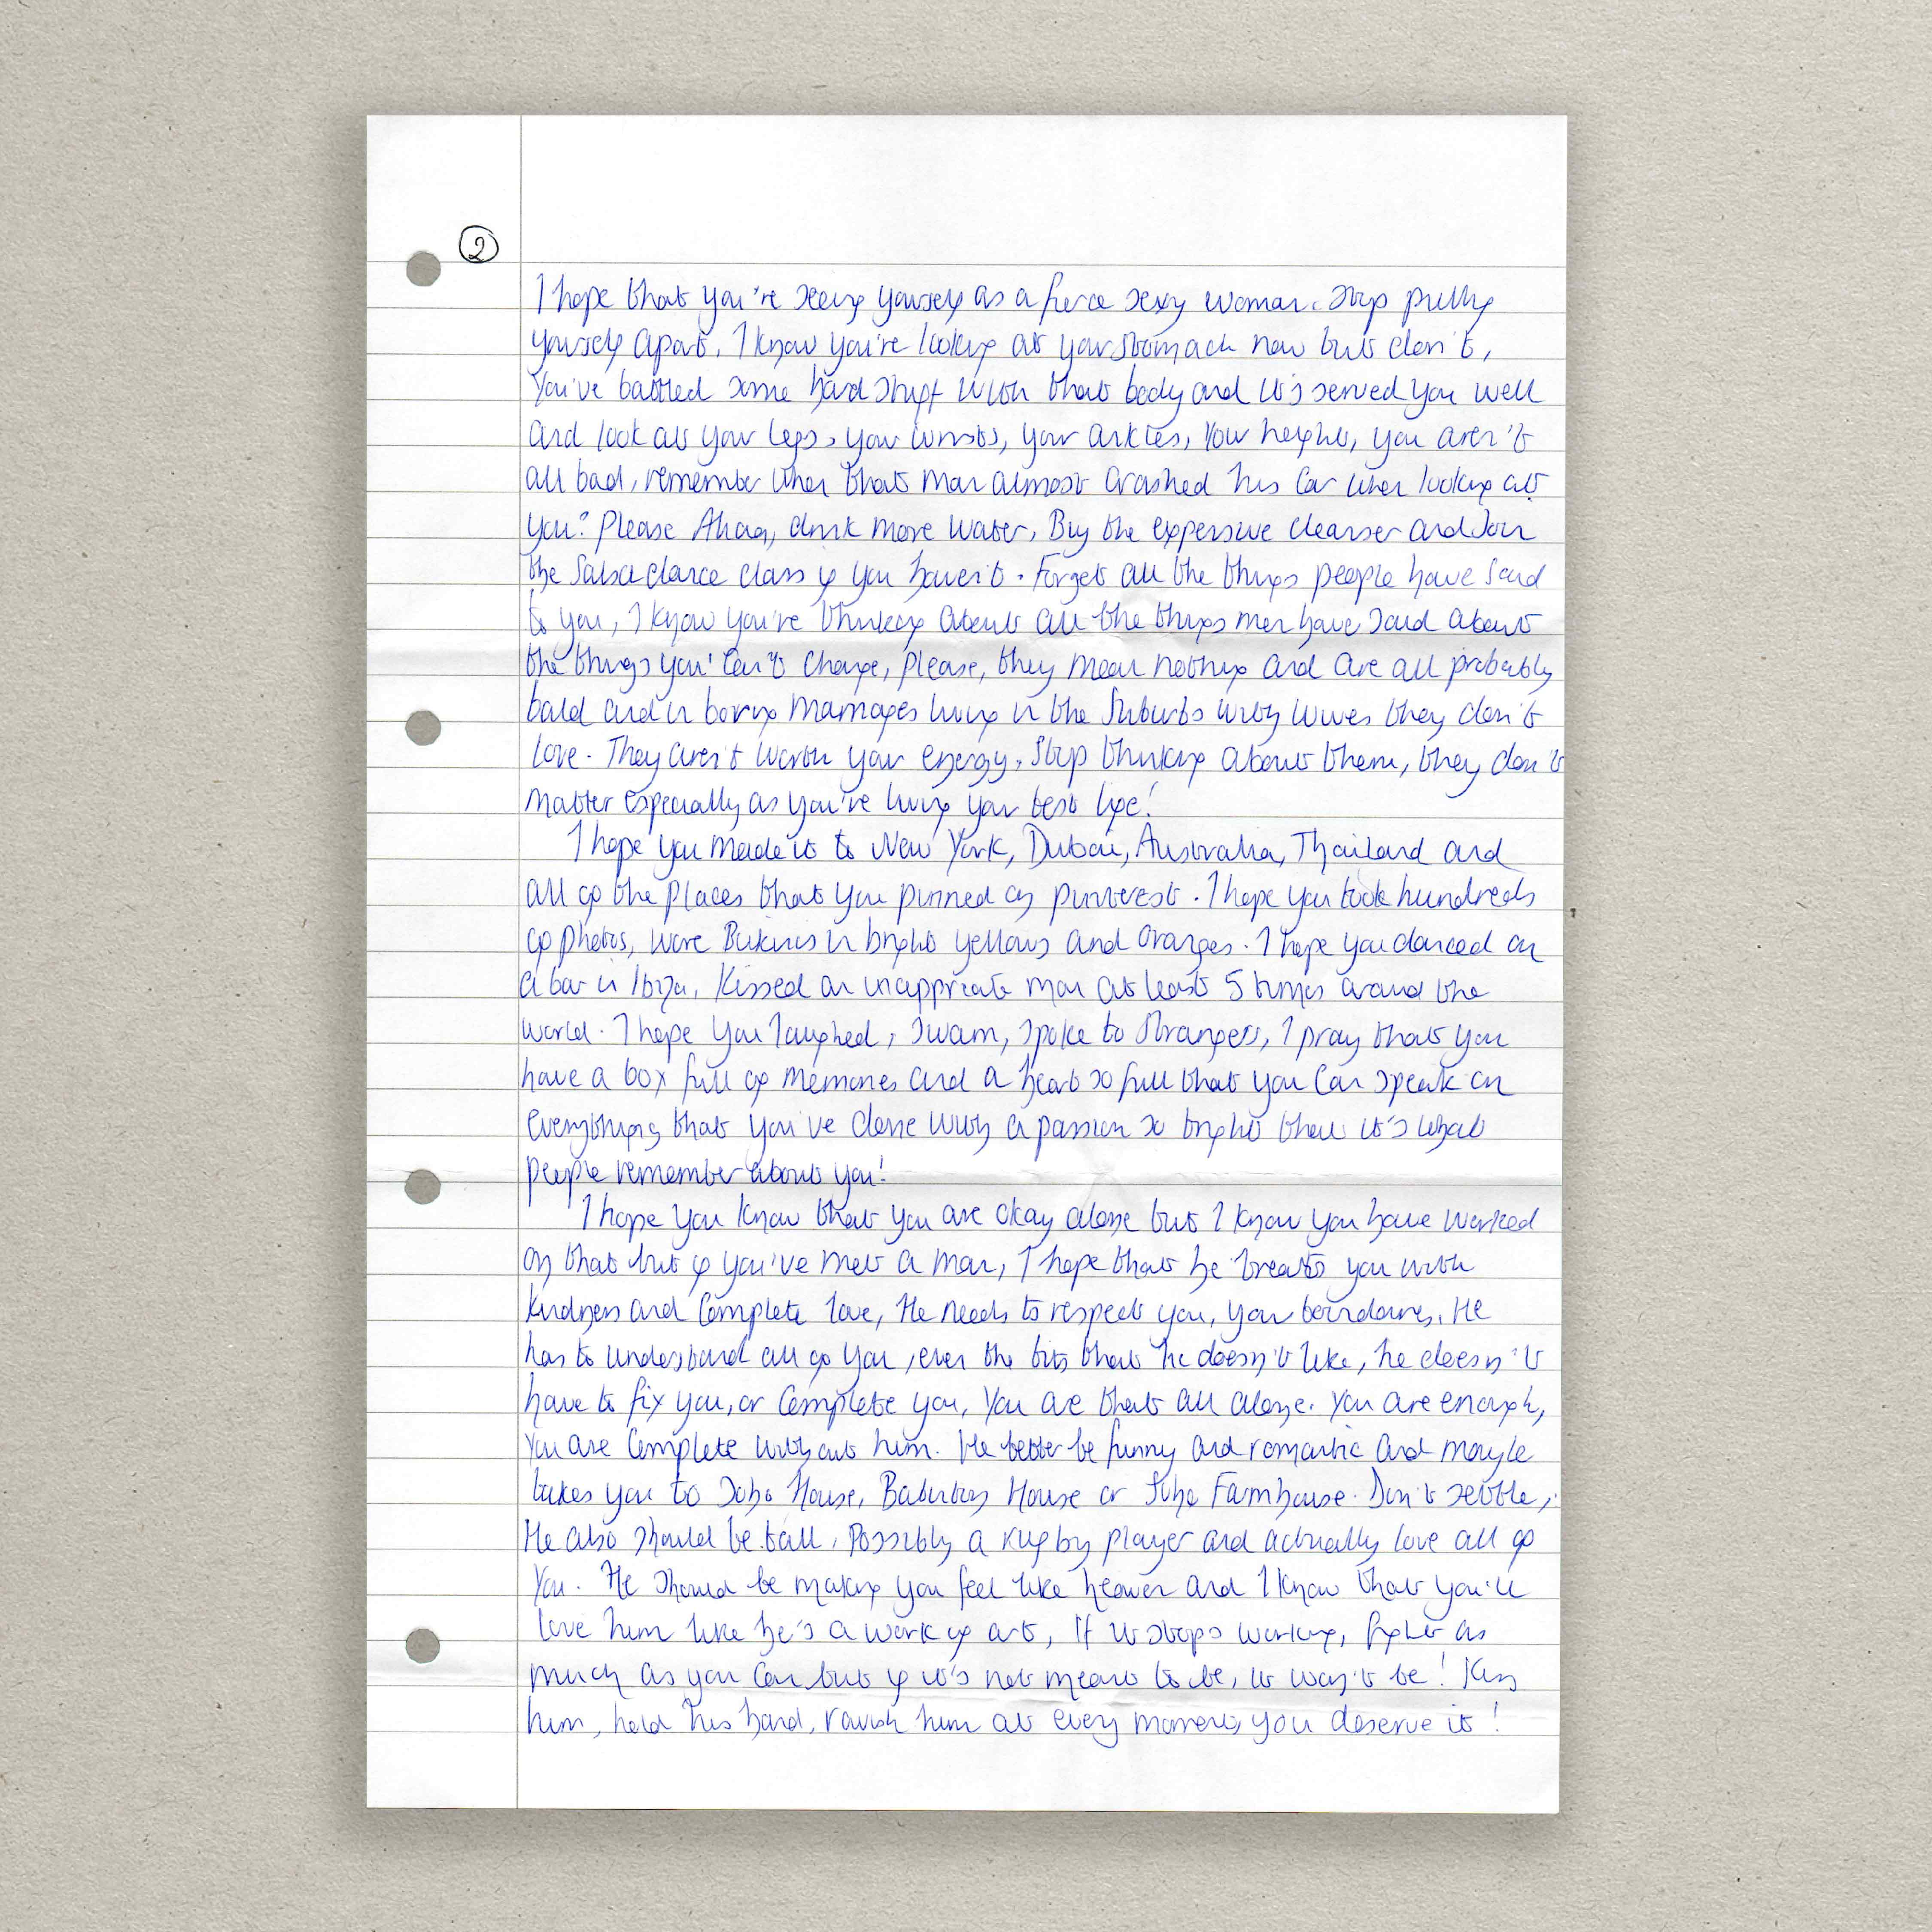 ②
I hope that you're seeing yourself as a fierce sexy woman. Stop pulling
yourself apart, I know you're looking at your stomach now but don't,
You've battled some hard shit with that body and it's served you well
and look at your legs, your wrists, your ankles, your height, you aren't
all bad, remember when that man almost crashed his car when looking at
you? Please drink more water, Buy the expensive cleanser and Join
the Salsa dance class if you haven't. Forget all the things people have said
to you, I know you're thinking about all the things men have said about
the things you can't change, please, they mean nothing and are all probably
bald and in boring marriages living in the Suburbs with wives they don't
love. They aren't worth your energy, Stop thinking about them, they don't
matter especially as you're living your best life!
I hope you made it to New York, Dubai, Australia, Thailand and
all of the places that you pinned on pinterest. I hope you took hundreds
of photos, wore Bikinis in bright yellows and oranges. I hope you danced on
a bar in Ibiza, Kissed an inappriate man at least 5 times around the
world. I hope you laughed, swam, spoke to strangers, I pray that you
have a box full of memories and a heart so full that you can speak on
everything that you've done with a passion so bright that it's what
people remember about you!
I hope you know that you are okay alone but I know you have worked
on that but if you've met a man, I hope that he treats you with
kindness and complete love, He needs to respect you, your boundaries. He
has to understand all of you, even the bits that he doesn't like, he doesn't
have to fix you, or complete you, You are that all alone. You are enough,
You are complete without him. He better be funny and romantic and maybe
takes you to Soho House, Babington House or Soho Farmhouse. Don't settle,
He also should be tall, possibly a rugby player and actually love all of
You. He should be making you feel like heaven and I know that you'll
love him like he's a work of art, If it stops working, fight as
much as you can but if it's not meant to be, it won't be! Kiss
him, hold his hand, ravish him at every moment, you deserve it!